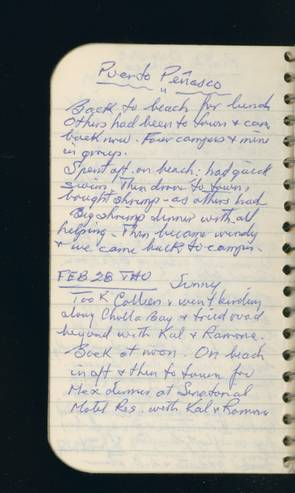 Puerto Peñasco
"
Back to beach for lunch
Others had been to town & came
back now. Four campers & mine
in group.
Spent aft. on beach; had quick
swim, then drove to town &
bought shrimp - as others had
Big shrimp dinner with all
helping. Then became windy
& we came back to camper.
FEB 28 THU Sunny
Took Colleen & went birding
along Cholla Bay & tried road
beyond with Kal & Ramona.
Back at noon. On beach
in aft & then to town for
Mex dinner at Senatorial
Motel Res. with Kal & Ramona